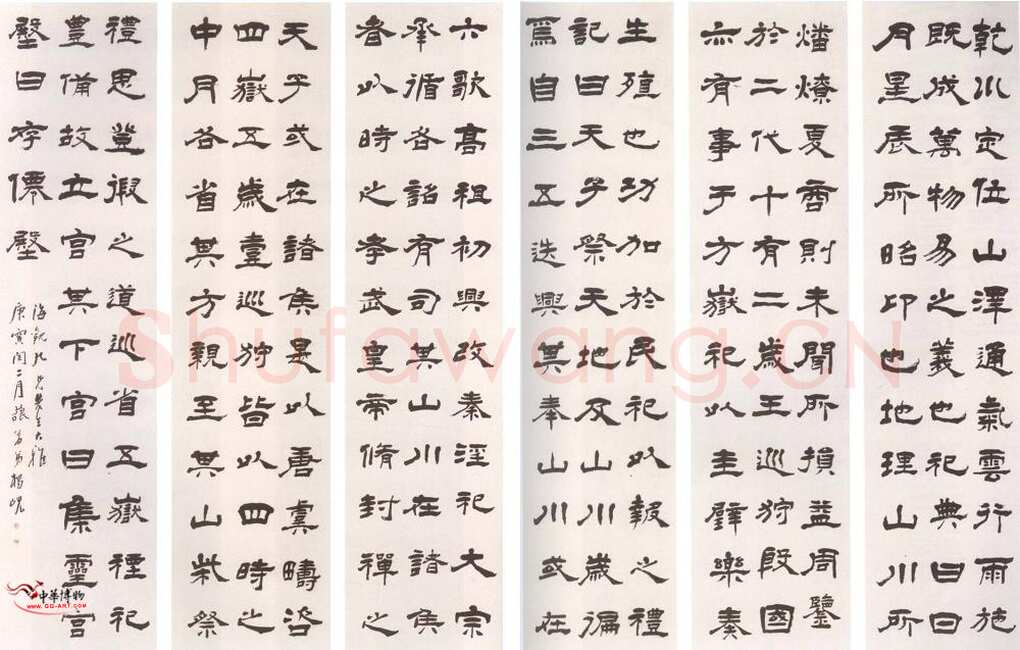 乾川定位山澤通氣雲行雨施
既成萬物易之義也祀典曰日
月星辰所昭卬也地理山川所
燔燎夏商則未聞所損益周鑒
於二代十有二歲王巡狩殷國
亦有事于方嶽祀以圭璧樂奏
生殖也功加於民祀以報之禮
記曰天子祭天地及山川歲徧
焉自三五迭興其奉山川或在
六歌高祖初興改秦淫祀大宗
承循各詔有司其山川在諸侯
者以時之孝武皇帝脩封禪之
天子或在諸侯是以唐虞疇咨
四嶽五歲壹巡狩皆以四時之
中月各省其方親至其山柴祭
禮思登徦之道巡省五嶽禋祀
豐備故立宮其下宮曰集靈宮
殿曰存僊殿
海觀九兄先生大雅
庚寅閏二月藐翁弟楊峴
Shufawang.CN
中華博物
www.GG-ART.com